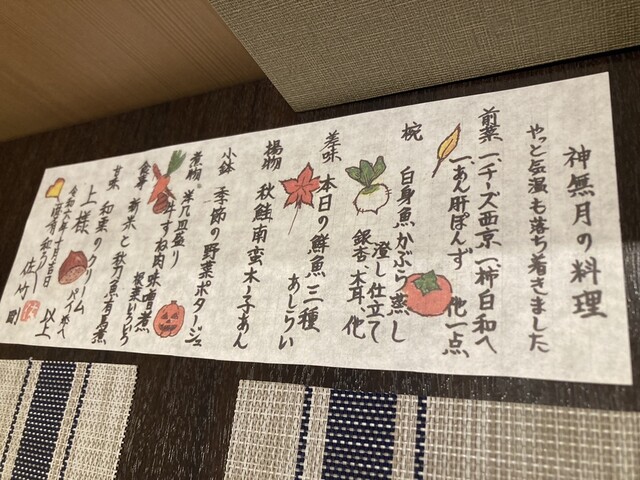 神無月の料理
やっと気温も落ち着きました
前菜 一、チーズ西京 一、柿白和へ
一、あん肝ぽんず 他一点
椀 白身魚かぶら蒸し
澄し仕立て
銀杏、木耳、他
差味 本日の鮮魚三種
あしらい
揚物 秋鮭南蛮木の子あん
小鉢 季節の野菜ポタージュ
煮物。 洋風盛り
牛すね肉味噌煮
根菜いろいろ
食事 新米と秋刀魚有馬煮
甘味 和栗のクリームパイ
上様
令和六年十月吉日
以上
佐竹 剛